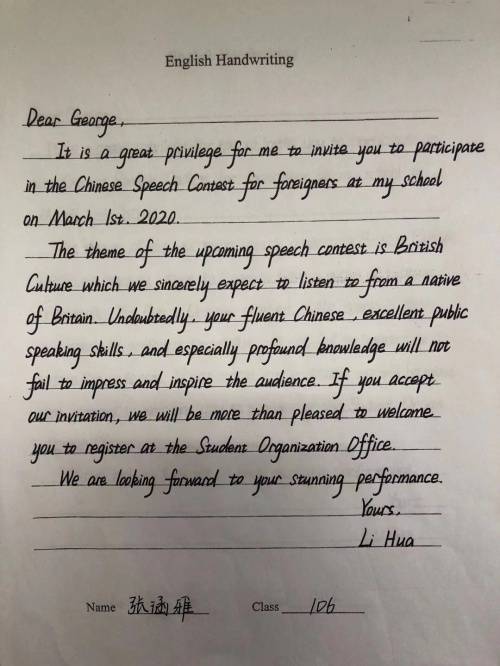 English Handwriting
Dear George,
It is a great privilege for me to invite you to participate
in the Chinese Speech Contest for foreigners at my school
on March 1st. 2020.
The theme of the upcoming speech contest is British
Culture which we sincerely expect to listen to from a native
of Britain. Undoubtedly, your fluent Chinese, excellent public
speaking skills, and especially profound knowledge will not
fail to impress and inspire the audience. If you accept
our invitation, we will be more than pleased to welcome
you to register at the Student Organization Office.
We are looking forward to your stunning performance.
Yours,
Li Hua
Name 张涵雅 Class 106